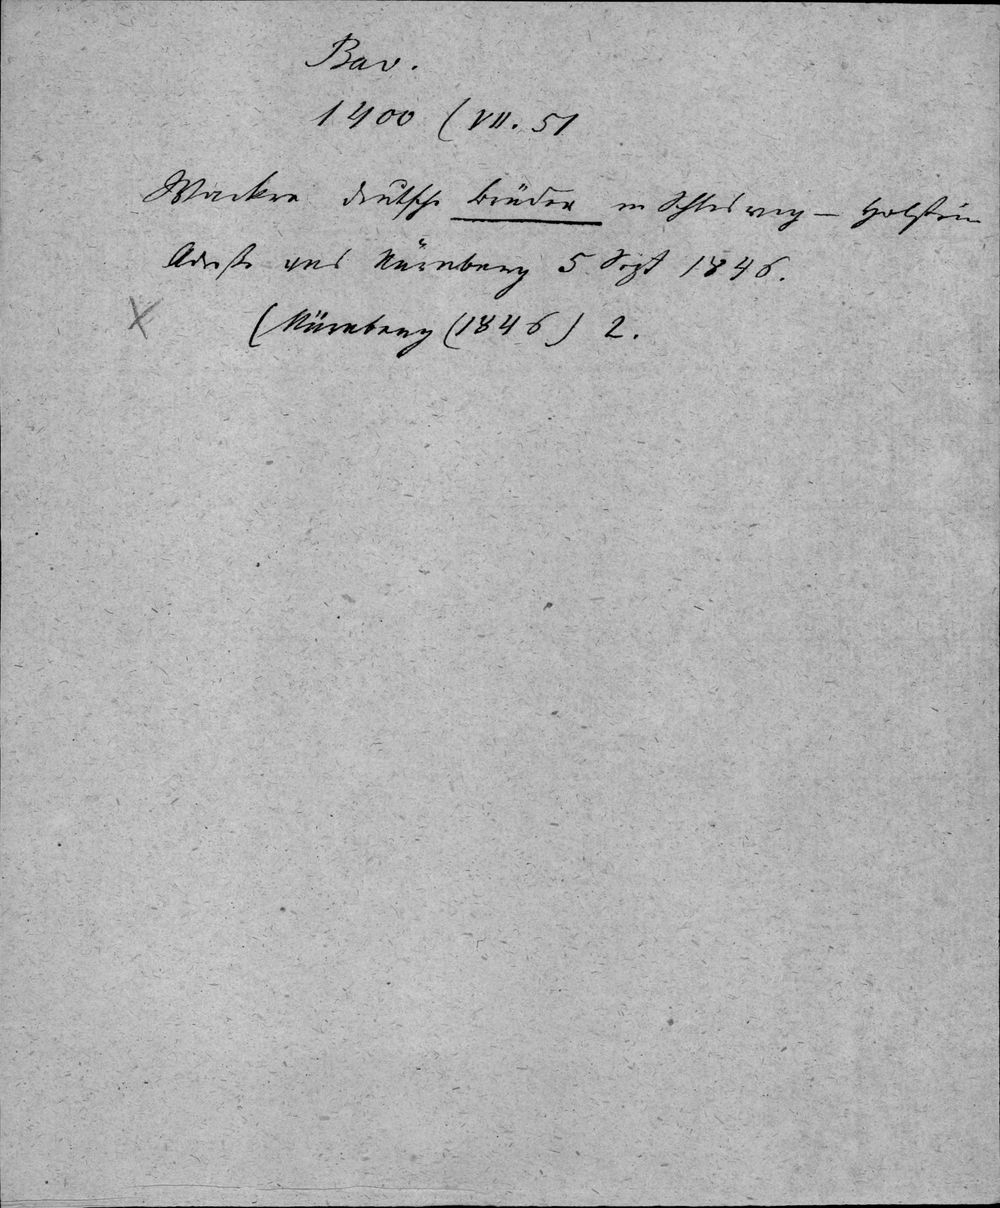 Bav.
1400 (VII. 51
Wackre deutsche Brüder in Schleswig-Holstein
Adresse aus Nürnberg 5 Sept 1846.
(Nürnberg (1846) 2.